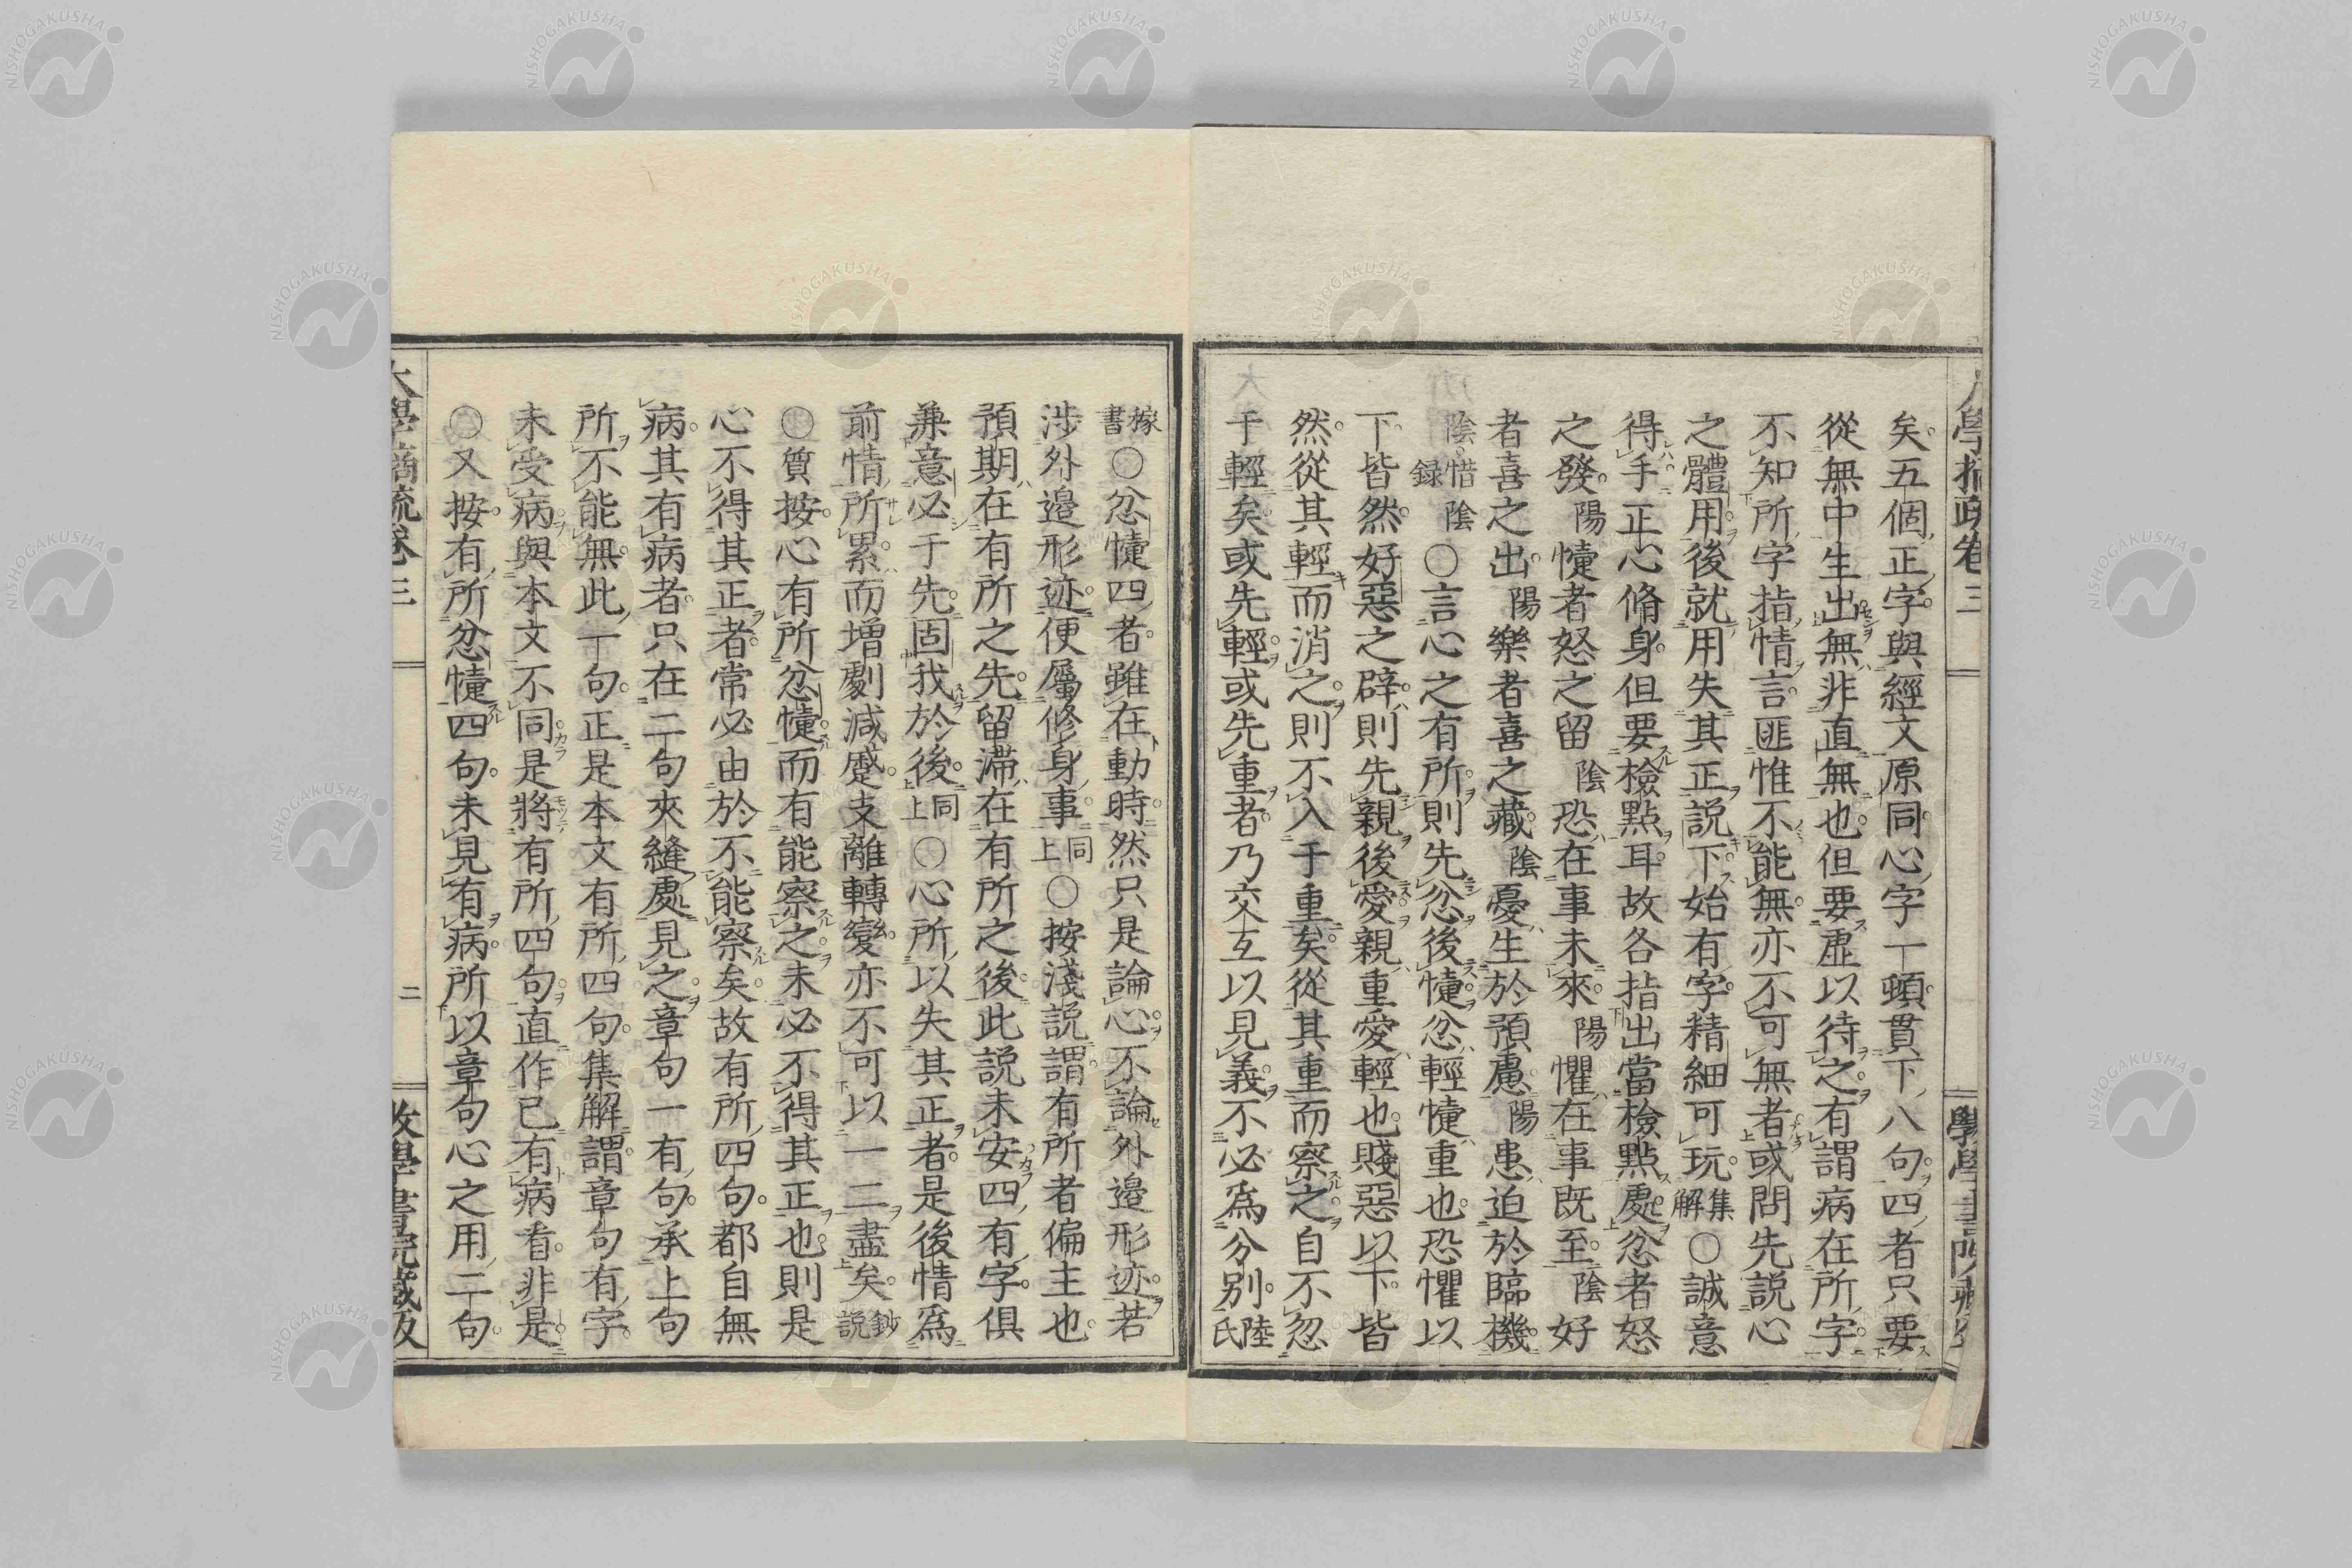 矣五個正字與經文原同心字一頓貫下八句四者只要
從無中生出無非直無也但要虛以待之有謂病在所字
不知所字指情言匪惟不能無亦不可無者或問先説心
之體用後就用失其正説下始有字精細可玩集解○誠意
得手正心脩身但要檢點耳故各指出當檢點處忿者怒
之發陽懥者怒之留陰恐在事未來陽懼在事既至陰好
者喜之出陽樂者喜之藏陰憂生於預慮陽患迫於臨機
陰惜陰録○言心之有所則先忿後懥忿輕懥重也恐懼以
下皆然好惡之辟則先親後愛親重愛輕也賤惡以下皆
然從其輕而消之則不入于重矣從其重而察之自不忽
于輕矣或先輕或先重者乃交互以見義不必爲分別陸氏
大學摘疏卷三
嫁書○忿懥四者雖在動時然只是論心不論外邉形迹若
涉外邉形迹便屬修身事同上○按淺説謂有所者偏主也
預期在有所之先留滯在有所之後此説未安四有字俱
兼意必于先固我於後同上○心所以失其正者是後情爲
前情所累而增劇減蹙支離轉變亦不可以一二盡矣鈔説
○質按心有所忿懥而有能察之未必不得其正也則是
心不得其正者常必由於不能察矣故有所四句都自無
病其有病者只在二句夾縫處見之章句一有句承上句
所不能無此一句正是本文有所四句集解謂章句有字
未受病與本文不同是將有所四句直作已有病看非是
○又按有所忿懥四句未見有病所以章句心之用二句
大學摘疏卷三
二